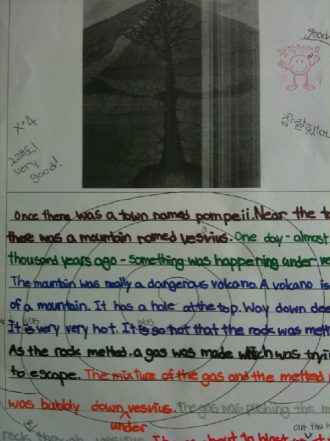 good!
참 잘했어요
X-4
그래도!
very
good!
Once there was a town named pompeii. Near the to
there was a mountain named vesvius. One day - almost
thousand years ago - something was happening under ve
The mountain was really a dangerous volcano. A volcano is
of a mountain. It has a hole at the top. Way down dee
It is very very hot. It is so hot that the rock was melt
was
As the rock melted. a gas was made which was tryin
to escape. The mixture of the gas and the melted
was bubbly down vesvius. The gas was pushing the m
under
out the